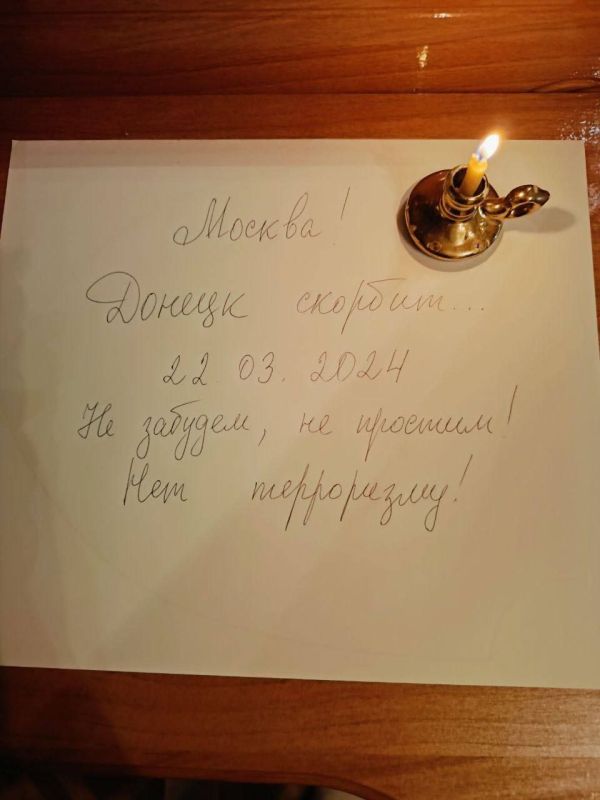 Москва!
Донецк скорбит...
22. 03. 2024
Не забудем, не простим!
Нет терроризму!